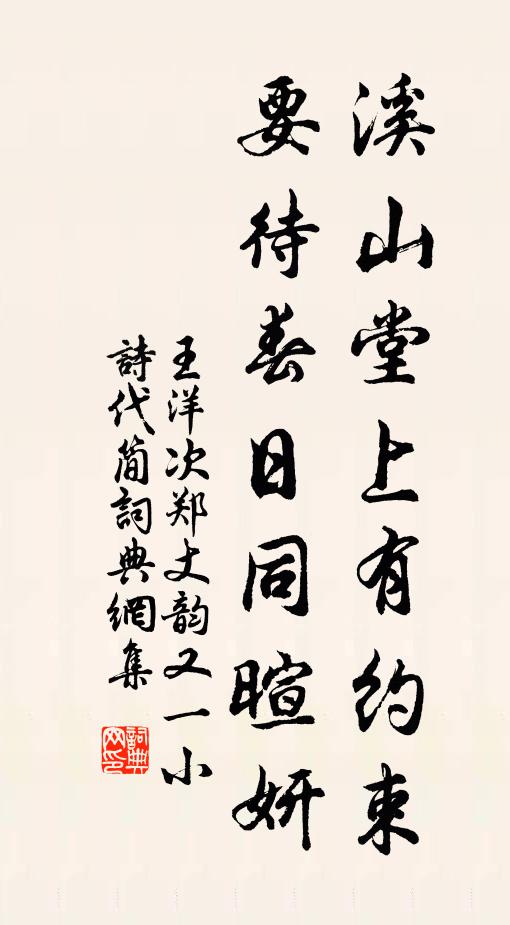 溪山堂上有約束
要待春日同暄妍
王洋次郑丈韵又一小
詩代简詞典網集
詞典网印